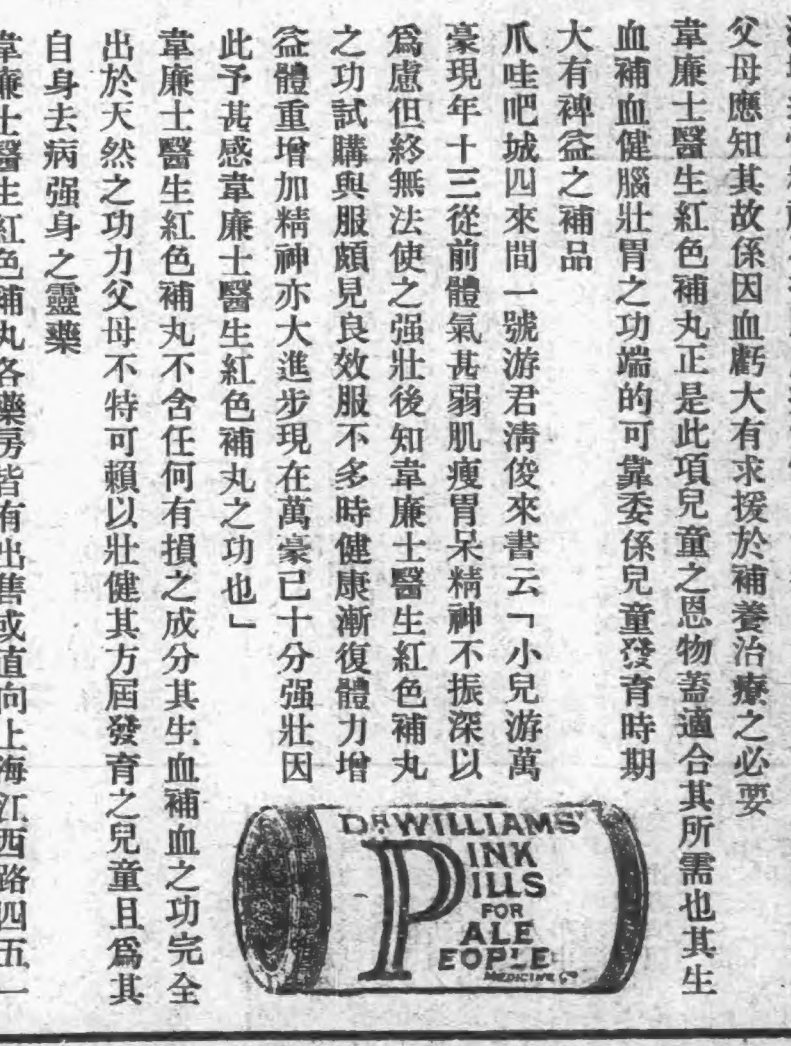 父母應知其故係因血虧大有求援於補養治療之必要
韋廉士醫生紅色補丸正是此項兒童之恩物蓋適合其所需也其生
血補血健腦壯胃之功端的可靠委係兒童發育時期
大有裨益之補品
爪哇吧城四來間一號游君清俊來書云「小兒游萬
豪現年十三從前體氣甚弱肌瘦胃呆精神不振深以
爲慮但終無法使之强壯後知韋廉士醫生紅色補丸
之功試購與服頗見良效服不多時健康漸復體力增
益體重增加精神亦大進步現在萬豪已十分强壯因
此予甚感韋廉士醫生紅色補丸之功也」
韋廉士醫生紅色補丸不含任何有損之成分其生血補血之功完全
出於天然之功力父母不特可賴以壯健其方屆發育之兒童且爲其
自身去病强身之靈藥
韋廉士醫生紅色補丸各藥房皆有出售或直向上海江西路四五一
DR WILLIAMS'
PINK
PILLS
FOR
PALE
PEOPLE
MEDICINE Co